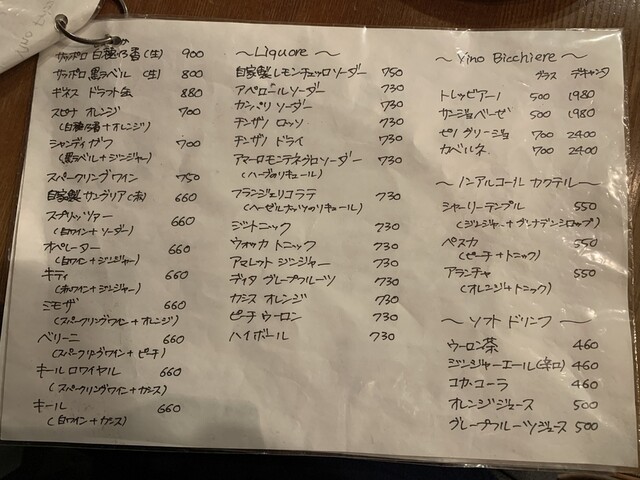 サッポロ 白穂乃香 (生) 900
サッポロ 黒ラベル (生) 800
ギネス ドラフト缶 880
スピナ オレンジ 700
(白穂乃香+オレンジ)
シャンディガフ 700
(黒ラベル+ジンジャー)
スパークリングワイン 750
自家製 サングリア (赤) 660
スプリッツァー 660
(白ワイン+ソーダー)
オペレーター 660
(白ワイン+ジンジャー)
キティ 660
(赤ワイン+ジンジャー)
ミモザ 660
(スパークリングワイン+オレンジ)
ベリーニ 660
(スパークリングワイン+ピーチ)
キール ロワイヤル 660
(スパークリングワイン+カシス)
キール 660
(白ワイン+カシス)
〜Liquore〜
自家製 レモンチェッロ ソーダー 750
アペロール ソーダー 730
カンパリ ソーダー 730
チンザノ ロッソ 730
チンザノ ドライ 730
アマーロ モンテネグロ ソーダー 730
(ハーブのリキュール)
フランジェリコ ラテ 730
(ヘーゼルナッツのリキュール)
ジントニック 730
ウォッカ トニック 730
アマレット ジンジャー 730
ディタ グレープフルーツ 730
カシス オレンジ 730
ピーチ ウーロン 730
ハイボール 730
〜Vino Bicchiere〜
グラス デキャンタ
トレッビアーノ 500 1980
サンジョベーゼ 500 1980
ピノ グリージョ 700 2400
カベルネ 700 2400
〜ノンアルコール カクテル〜
シャーリーテンプル 550
(ジンジャー+グレナデンシロップ)
ペスカ 550
(ピーチ+トニック)
アランチャ 550
(オレンジ+トニック)
〜ソフトドリンク〜
ウーロン茶 460
ジンジャーエール(辛口) 460
コカ・コーラ 460
オレンジジュース 500
グレープフルーツジュース 500